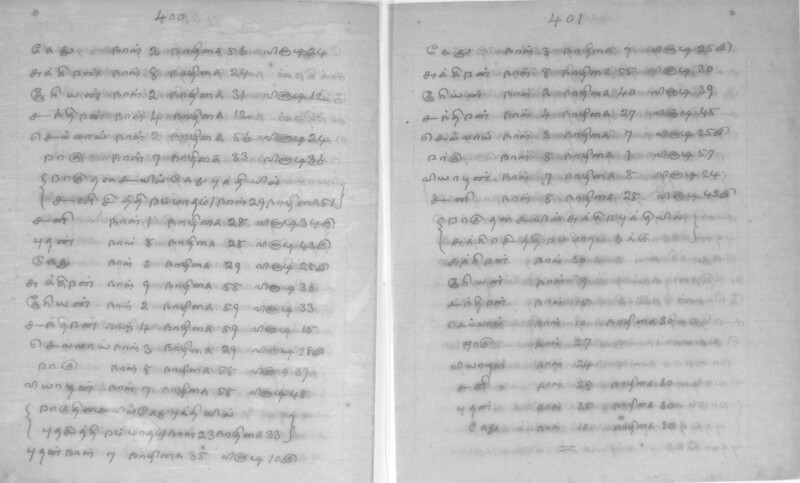 400
கேது நாள் 2 நாழிகை 56 விகடி 24
சுக்கிரன் நாள் 8 நாழிகை 24
சூரியன் நாள் 2 நாழிகை 31 விகடி 12
சந்திரன் நாள் 4 நாழிகை 12
செவ்வாய் நாள் 2 நாழிகை 56 விகடி 24
ராகு நாள் 7 நாழிகை 33 விகடி 36
ராகு தசையில் கேது புத்தியில்
சனி சித்திரம் மாதம் 1 நாள் 29 நாழிகை 51
சனி நாள் 1 நாழிகை 28 விகடி
புதன் நாள் 8 நாழிகை 28 விகடி
கேது நாள் 3 நாழிகை 29 விகடி
சுக்கிரன் நாள் 9 நாழிகை 58 விகடி 36
சூரியன் நாள் 2 நாழிகை 59 விகடி 33
சந்திரன் நாள் 4 நாழிகை 59 விகடி 15
செவ்வாய் நாள் 3 நாழிகை 29 விகடி
ராகு நாள் 8 நாழிகை 58 விகடி 39
வியாழன் நாள் 7 நாழிகை 58 விகடி 48
ராகு திசையில் கேது புத்தியில்
புத சித்திரம் மாதம் 1 நாள் 23 நாழிகை 33
புதன் நாள் 7 நாழிகை 35 விகடி
401
கேது நாள் 3 நாழிகை 7 விகடி
சுக்கிரன் நாள் 8 நாழிகை 55 விகடி 30
சூரியன் நாள் 2 நாழிகை 40 விகடி 39
சந்திரன் நாள் 4 நாழிகை 27 விகடி 45
செவ்வாய் நாள் 3 நாழிகை 7 விகடி
ராகு நாள் 8 நாழிகை 1 விகடி 57
வியாழன் நாள் 7 நாழிகை 8 விகடி 24
சனி நாள் 8 நாழிகை 28 விகடி
ராகு தசையில் சுக்கிர புத்தியில்
சுக்கிர சித்திரம் மாதம்
சுக்கிரன் நாள் 30
சூரியன் நாள் 9
சந்திரன் நாள் 15
செவ்வாய் நாள் 10 நாழிகை 30
ராகு நாள் 27
வியாழன் நாள் 24
சனி நாள் 28 நாழிகை 30
புதன் நாள் 25 நாழிகை 30
கேது நாள் 10 நாழிகை 30